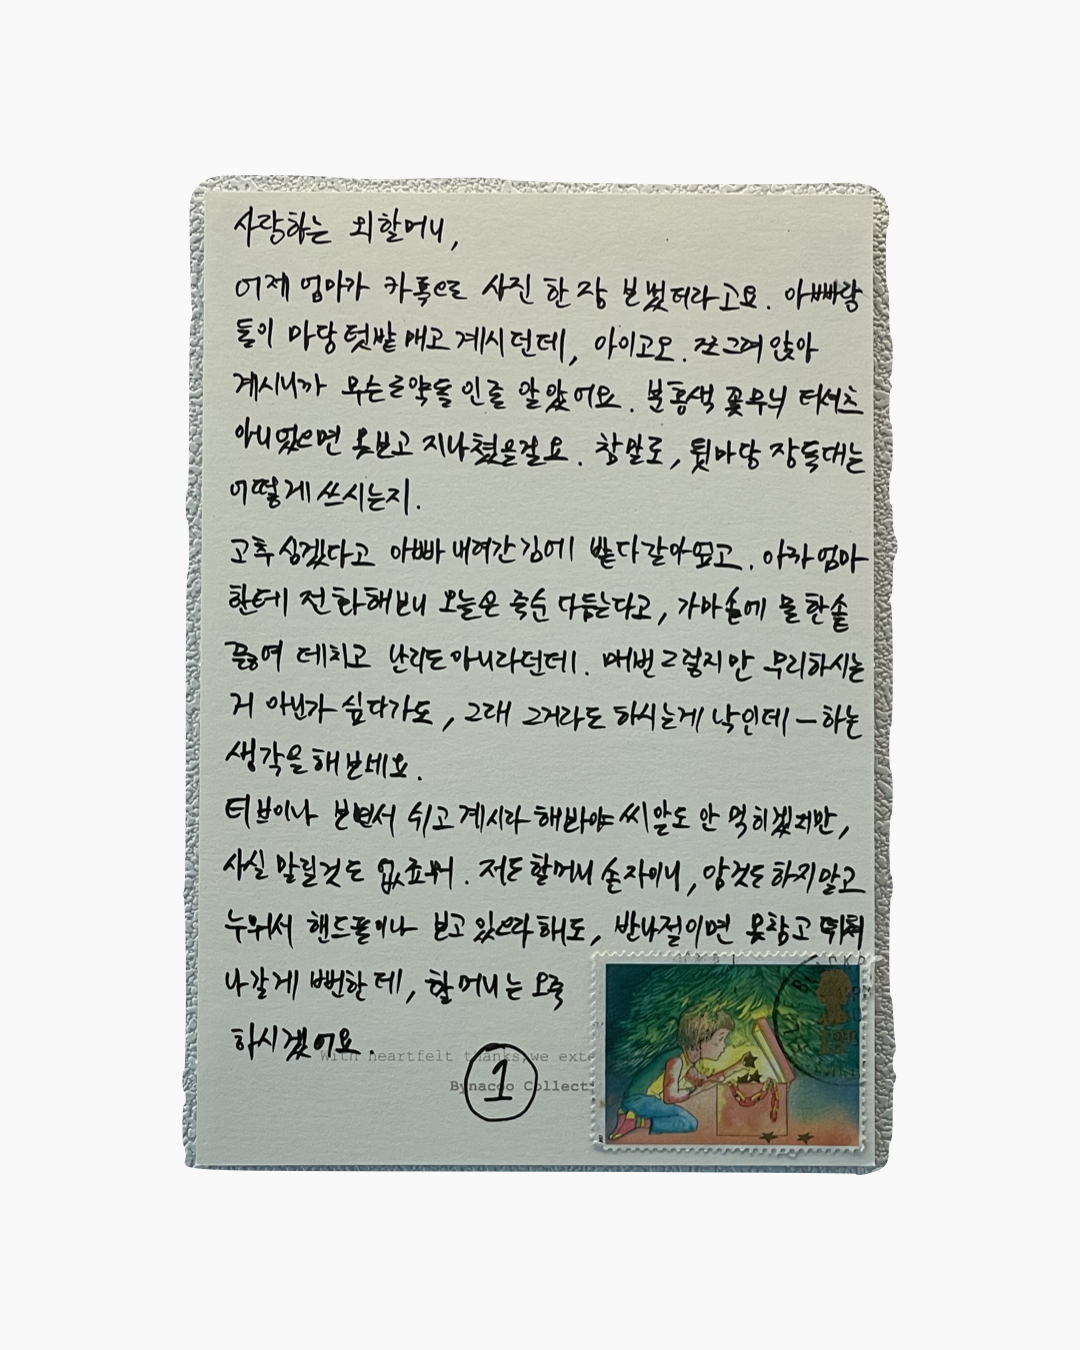 사랑하는 외할머니,
어제 엄마가 카톡으로 사진 한 장 보냈더라고요. 아빠랑
둘이 마당 텃밭 매고 계시던데, 아이고오. 쪼그려 앉아
계시니까 무슨 조약돌인줄 알았어요. 분홍색 꽃무늬 티셔츠
아니었으면 못보고 지나쳤을걸요. 참말로, 뒷마당 장독대는
어떻게 쓰시는지.
고추 심겠다고 아빠 내려간김에 밭 다 갈아엎고. 아까 엄마
한테 전화해보니 오늘은 죽순 다듬는다고, 가마솥에 물 한솥
끓여 데치고 난리도 아니라던데. 매번 그렇지만 무리하시는
거 아닌가 싶다가도, 그래 그거라도 하시는게 낙인데 — 하는
생각을 해보네요.
티브이나 보면서 쉬고 계시라 해봐야 씨알도 안 먹히겠지만,
사실 말릴것도 없죠 뭐. 저도 할머니 손자이니, 암것도 하지말고
누워서 핸드폰이나 보고 있으라 해도, 반나절이면 못참고 뛰쳐
나갈게 뻔한데, 할머니는 오죽
하시겠어요.
With heartfelt thanks, we exte
Bynacoo Collecti
1